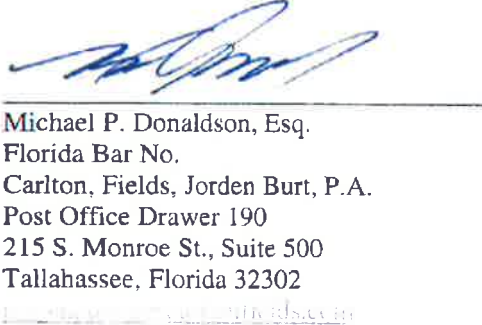 Michael P. Donaldson, Esq.
Florida Bar No.
Carlton, Fields, Jorden Burt, P.A.
Post Office Drawer 190
215 S. Monroe St., Suite 500
Tallahassee, Florida 32302